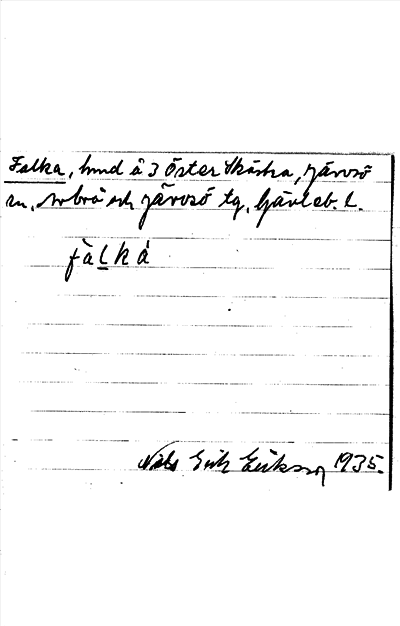 Falka, hund å 3 Öster Skästra, Järvsö
sn, Arbrå och Järvsö tg, Gävleb. L.
fàlká
Nils Erik Eriksson 1935.